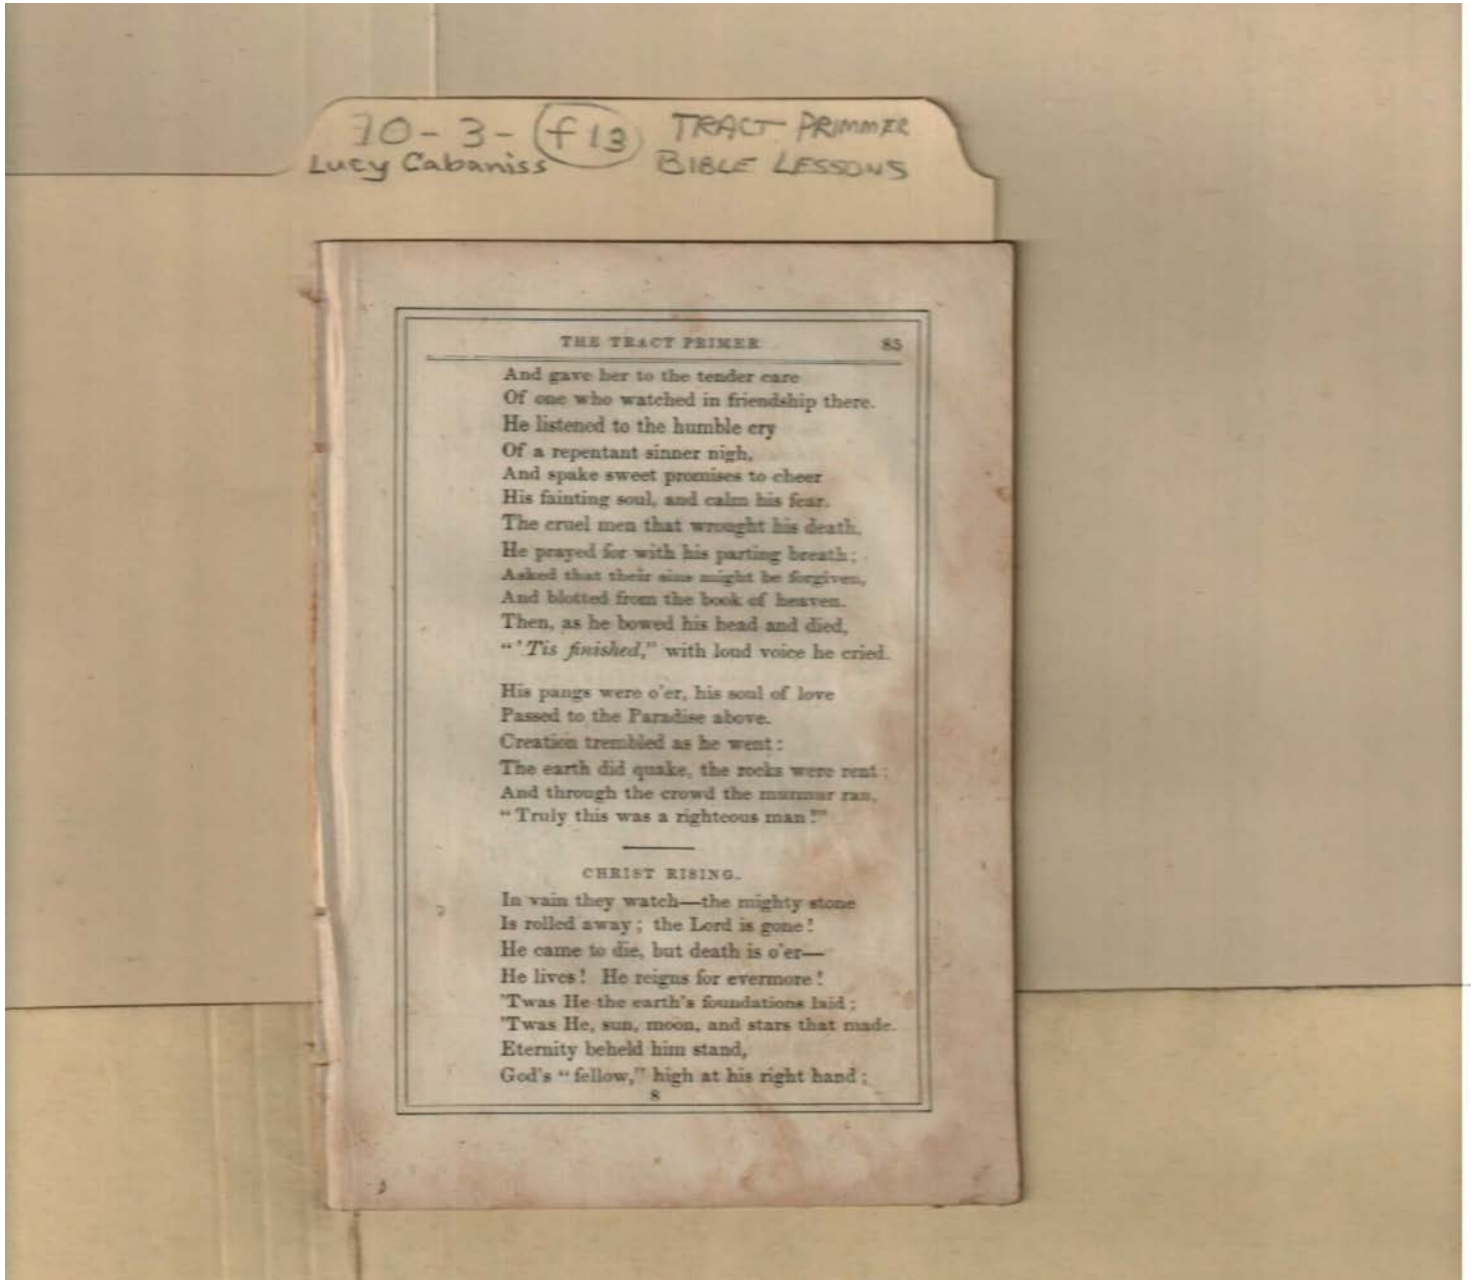 70-3-f13 TRACT PRIMMER
Lucy Cabaniss BIBLE LESSONS
THE TRACT PRIMER 85
And gave her to the tender care
Of one who watched in friendship there.
He listened to the humble cry
Of a repentant sinner nigh,
And spake sweet promises to cheer
His fainting soul, and calm his fear.
The cruel men that wrought his death,
He prayed for with his parting breath;
Asked that their sins might be forgiven,
And blotted from the book of heaven.
Then, as he bowed his head and died,
"'Tis finished," with loud voice he cried.
His pangs were o'er, his soul of love
Passed to the Paradise above.
Creation trembled as he went:
The earth did quake, the rocks were rent;
And through the crowd the murmur ran,
"Truly this was a righteous man!"
CHRIST RISING.
In vain they watch—the mighty stone
Is rolled away; the Lord is gone!
He came to die, but death is o'er—
He lives! He reigns for evermore!
'Twas He the earth's foundations laid;
'Twas He, sun, moon, and stars that made.
Eternity beheld him stand,
God's "fellow," high at his right hand;
8